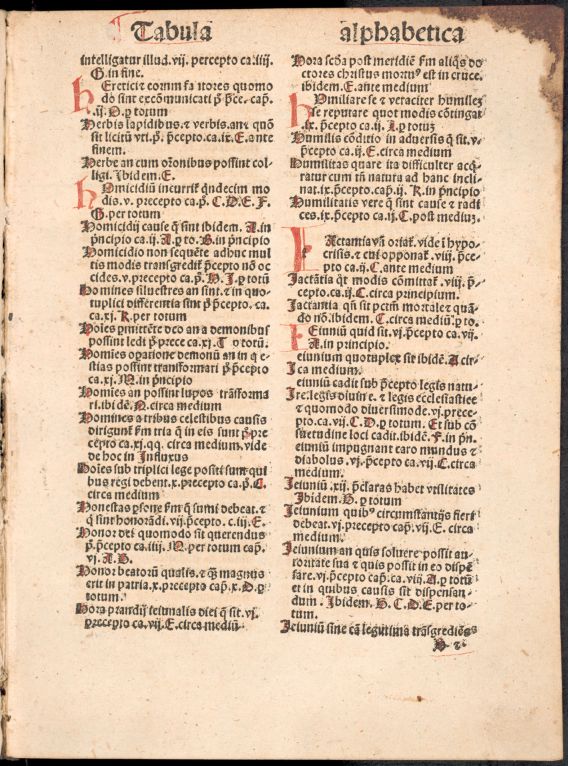 Tabula alphabetica
intelligatur illud .vij. percepto ca .iiij.
G. in fine.
Heretici et eorum fautores quomo
do sint excōmunicati p̄ p̄ce. cap̄.
.ij. D. p totum
Herbis lapidibus. et verbis. an et quō
sit licitū vti. p̄. p̄cepto. ca .ix. E. ante
finem.
Herbe an cum oōonibus possint col-
ligi. Ibidem. E.
Homicidiū incurrit q̄ndecim mo
dis. v. precepto ca. p̄. C. D. E. F.
G. per totum
Homicidij cause q̄ sint ibidem. A. in
p̄ncipio ca. ij. A. p to. B. in p̄ncipio
Homicidio non sequēte adhuc mul
tis modis transgredit̄ p̄cepto nō oc
cides. v. precepto ca. p̄. H. I. p totū
Homines siluestres an sint. et in quo-
tuplici differentia sint p̄ p̄cepto. ca.
ca. xj. K. per totum
Hoīes p̄mittēte deo an a demonibus
possint ledi p̄ p̄rece ca. xj. L. p totū.
Homīes opatione demonū an in q̄ e-
stias possint transformari p̄ p̄cepto
ca. xj. M. in p̄ncipio
Homīes an possint lupos trāsforma
ri. ibidē. N. circa medium
Homines a tribus celestibus causis
dirigunt̄ ẜm tria q̄ in eis sunt p̄ pre
cepto ca. xj. qq. circa medium, vide
de hoc in Influxus
Hoīes sub triplici lege positi sunt qui
bus regi debent. x. precepto ca. p̄. C.
circa medium
Honestas p̄sone ẜm q̄ sumi debeat. et
q̄ sint honorādi. vij. p̄cepto. c. iij. E.
Honor dei quomodo sit querendus
p̄. p̄cepto ca. iiij. M. per totum cap̄.
vj. A. B.
Honor beatorū qualis. et q̄ magnus
erit in patria. x. precepto cap̄. x. D. p
totum.
Hora prandij ieiunalis diei q̄ sit. vj.
precepto ca. vij. E. circa mediū
Hora scd̄a post meridiē ẜm aliq̄s do
ctores christus mortu⁹ est in cruce.
ibidem. E. ante medium
Humiliare se et veraciter humilez
se reputare quot modis cōtingat
.ix. p̄cepto ca. ij. I. p totuz
Humilis cōditio in aduersis q̄ sit. v.
p̄cepto ca. ij. E. circa medium
Humilitas quare ita difficulter acq̄-
ratur cum tn̄ natura ad hanc incli-
nat. ix. p̄cepto. cap̄. ij. K. in p̄ncipio
Humilitatis vere q̄ sint cause et radi
ces. ix. p̄cepto ca. ij. C. post mediuz.
IActantia vn̄ oriat̄. vide ī hypo-
crisis. et cui opponat̄. viij. p̄ce-
pto ca. ij. C. ante medium
Iactātia q̄t modis cōmittat̄. viij. p̄-
cepto. ca. ij. C. circa principium.
Iactantia qn̄ sit pctm̄ mortale et quā-
do nō. ibidem. C. circa mediū. p to.
IEiuniū quid sit. vj. p̄cepto ca. vij.
A. in principio.
Ieiunium quotuplex sit ibidē. A cir-
ca medium.
Ieiuniū cadit sub p̄cepto legis natu-
re. legis diuine. et legis ecclesiastice
et quomodo diuersimode. vj. prece-
pto. ca. vij. C. D. p totum. Et sub cō
suetudine loci cadit. ibidē. F. in p̄n.
Ieiuniū impugnant caro mundus et
diabolus. vj. p̄cepto ca. vij. C. circa
medium.
Ieiuniū. xij. p̄claras habet vtilitates
Ibidem. B. p totum
Ieiunium quib⁹ circumstantijs fieri
debeat. vj. precepto cap̄. vij. E. circa
medium.
Ieiunium an quis soluere possit au-
ctoritate sua et quis possit in eo dispē
sare. vj. p̄cepto cap̄. ca. viij. A. p totū
et in quibus causis sit dispensan-
dum. Ibidem. B. C. D. E. per to-
tum.
Ieiuniū sine cā legitima trāsgrediēs